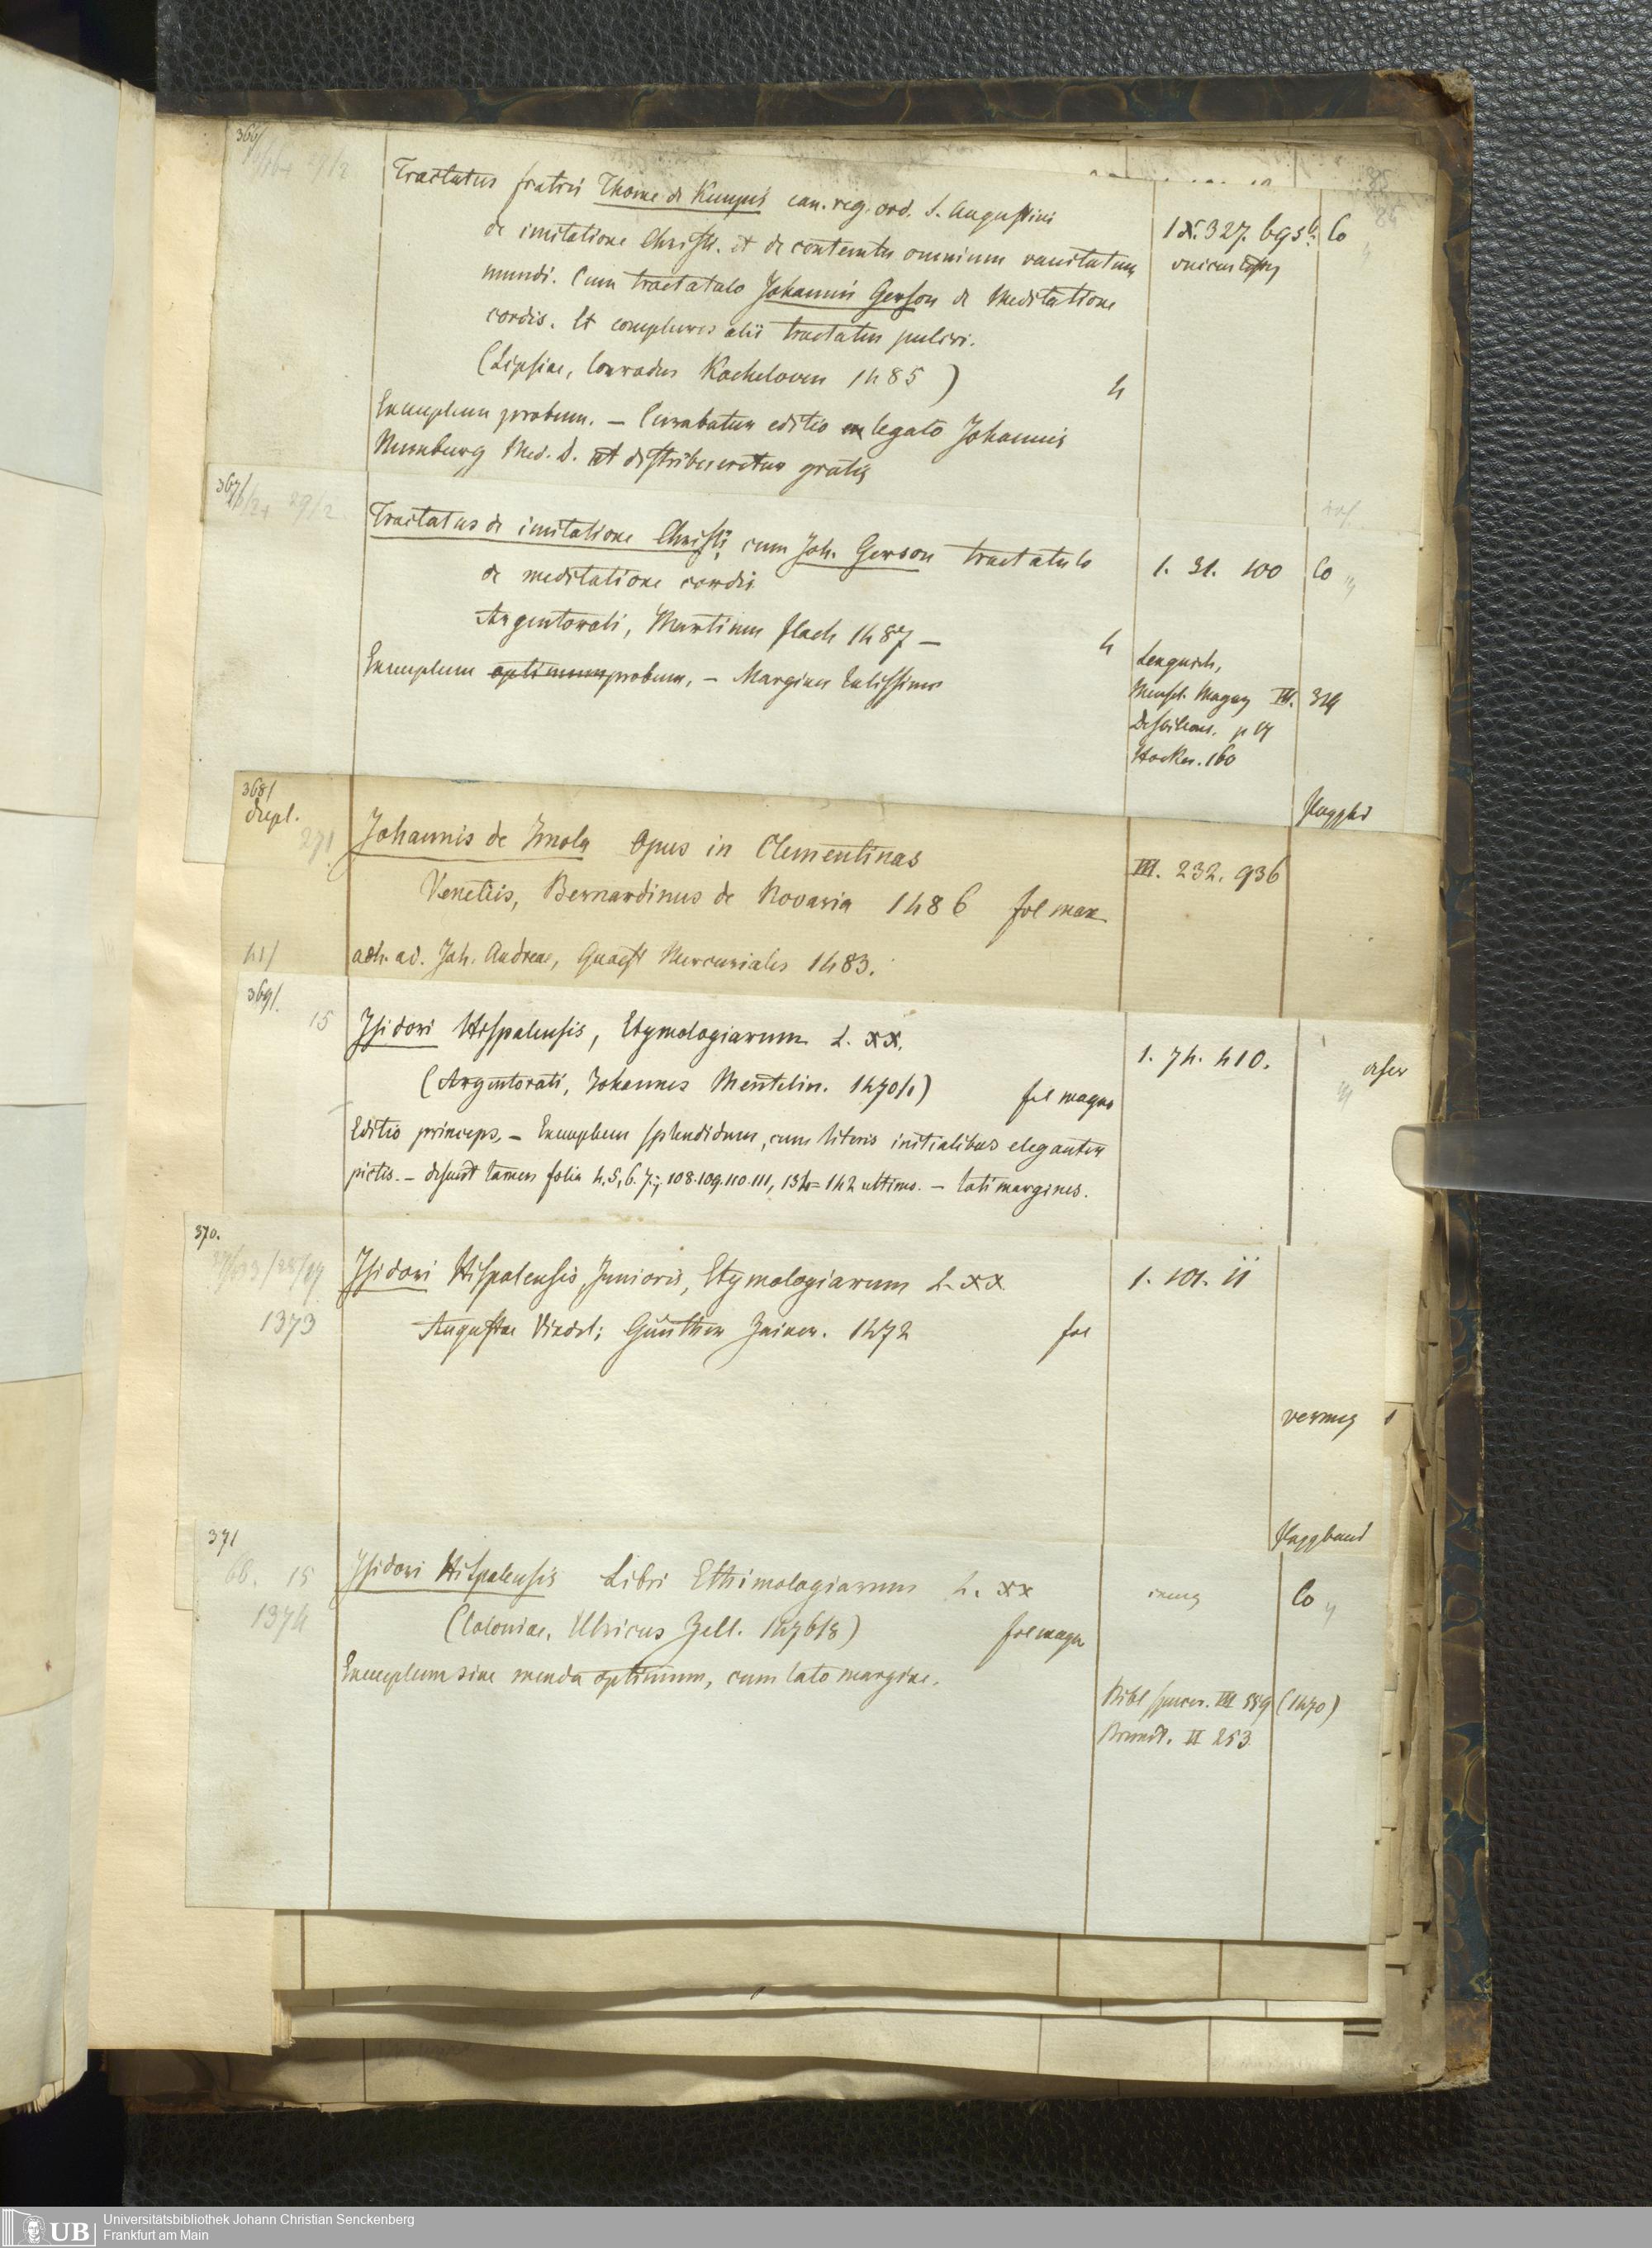 366/
Tractatus fratris Thome de Kempis can. reg. ord. S. Augustini
de imitatione Christi. et de contemtu omnium vanitatum
mundi. Cum tractatulo Johannis Gerson de Meditatione
cordis. Et complures alii tractatus pulcri.
(Lipsiae, Conradus Kacheloven 1485) 4
IX. 327. 695 b. Co
Exemplum probum. — Curabatur editio ex legato Johannis
Nurnburg Med. D. ut distribueretur gratis
367/
29/2
Tractatus de imitatione Christi, cum Joh. Gerson tractatulo
de meditatione cordis
Argentorati, Martinus Flach 1487 — 4
1. 31. 100 Co
Exemplum optimum probum, — Margines latissimi
Lengnich,
Meusel. Magaz III. 319
Hocker. 160
368/
dupl.
271
Johannis de Imola Opus in Clementinas
Venetiis, Bernardinus de Novaria 1486 fol max
III. 232. 936
adh. ad. Joh. Andreae, Quaest Mercuriales 1483.
41/
369/.
15
Isidori Hispalensis, Etymologiarum L. XX.
(Argentorati, Johannes Mentelin. 1470/1) fol magno
1. 74. 410.
Editio princeps. — Exemplum splendidum, cum literis initialibus eleganter
pictis. — desunt tamen folia 4, 5, 6. 7.; 108. 109. 110. 111, 134 = 142 ultimo. — lati margines.
370.
1373
Isidori Hispalensis, Junioris, Etymologiarum L. XX
Augustae Vindel; Günther Zainer. 1472 fol
1. 101. 11
371
66. 15
1374
Isidori Hispalensis Libri Ethimologiarum L. XX
(Coloniae, Ulricus Zell. 1476/8) fol magn
Co
Exemplum sine menda optimum, cum lato margine.
Pappband
Bibl spencer. III 559 (1470)
Brunet. II 253
UB Universitätsbibliothek Johann Christian Senckenberg
Frankfurt am Main